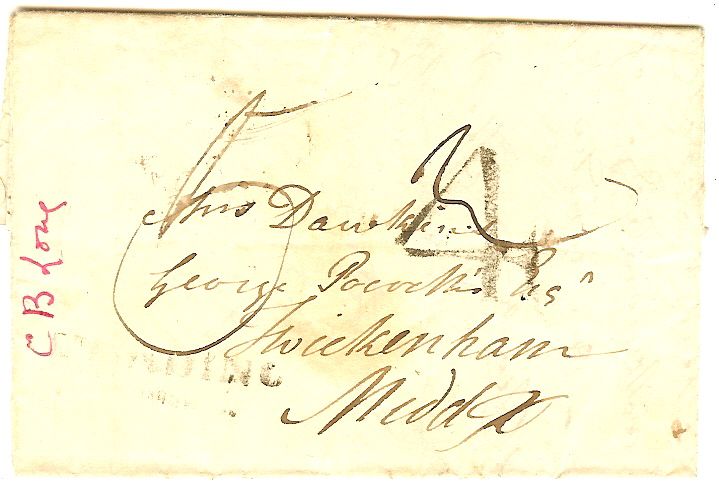 C B Long
4
Mrs Dawkins
George Pocock's Esqr
Twickenham
Middx